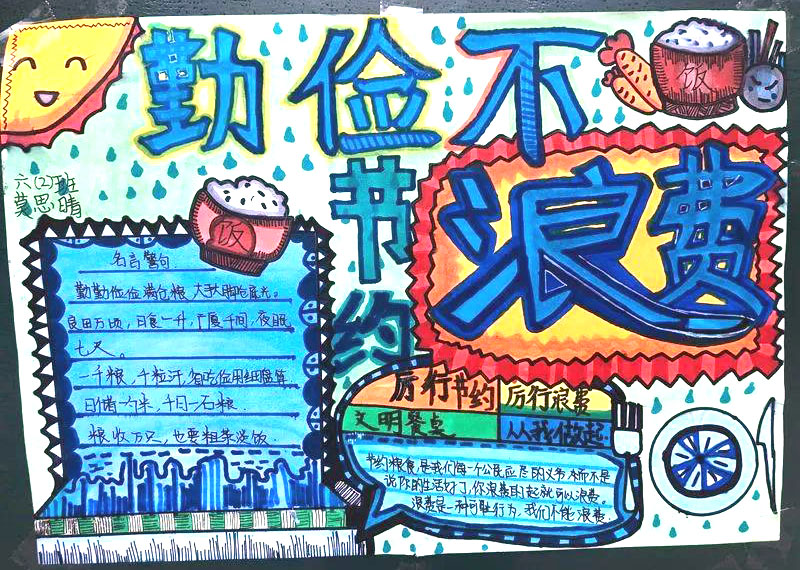 勤俭不
节约
浪费
饭
六(2)班
莫思晴
饭
名言警句
勤勤俭俭满仓粮,大手大脚吃尽光。
良田万顷,日食一升,广厦千间,夜眠
七尺。
一千粮,千粒汗,省吃俭用细盘算
日省一钱,千日一石粮.
粮收万石,也要粗茶淡饭.
厉行节约
厉行浪费
文明餐点
从我做起
节约粮食是我们每一个公民应尽的义务,而不是
说你的生活好了,你浪费得起就可以浪费。
浪费是一种可耻行为,我们不能浪费.